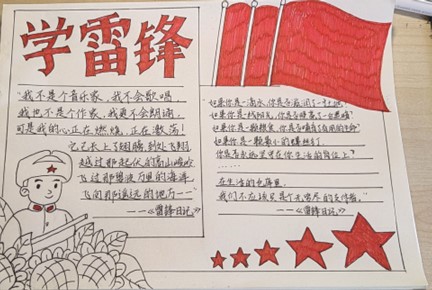 学雷锋
"我不是个音乐家，我不会歌唱
我也不是个作家，我更不会朗诵
可是我的心正在燃烧，正在激荡！
它已长上了翅膀到处飞翔
越过那起伏的高山峻岭
飞过那碧波万里的海洋
飞向那遥远的地方——"
——《雷锋日记》
"如果你是一滴水，你是否滋润了一寸土地
如果你是一线阳光，你是否照亮了一分黑暗
如果你是一颗粮食，你是否哺育了有用的生命
如果你是一颗最小的螺丝钉
你是否永远坚守在你生活的岗位上？
……
在生活的仓库里
我们不应该只是个无穷尽的支付者。"
——《雷锋日记》